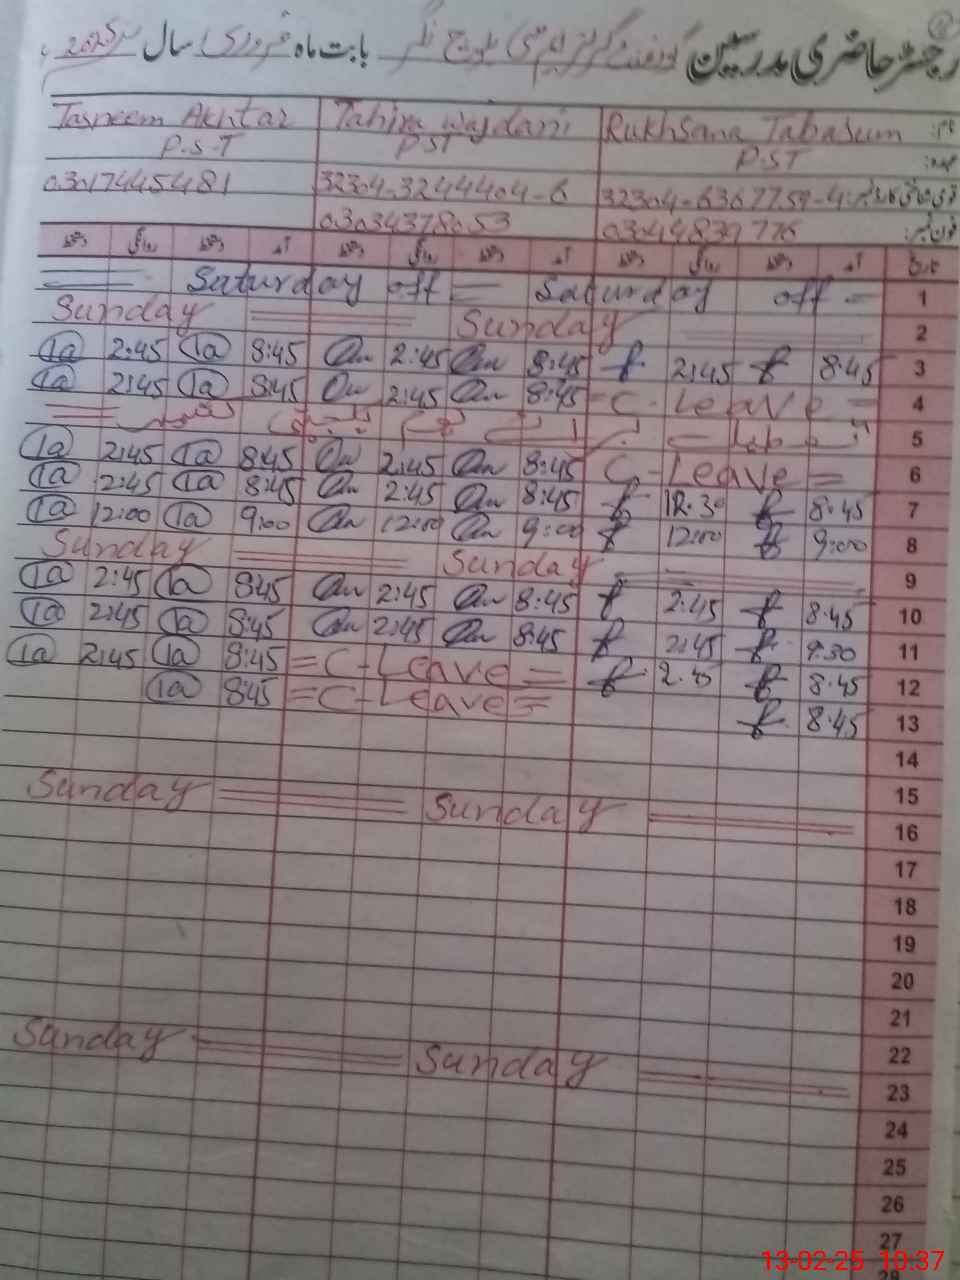 رجسٹر حاضری مدرسین گورنمنٹ گرلز بابت ماہ فروری سال 2025
نام: Rukhsana Tabasum Tahira Wajdani Tasneem Akhtar
عہدہ: P.ST PST P.S.T
قومی شناختی کارڈ نمبر: 32304-6367759-4 32304-3244404-6 03017445481
فون نمبر: 03034378053
تاریخ آمد دستخط روانگی دستخط آمد دستخط روانگی دستخط آمد دستخط روانگی دستخط
1 Saturday off = Saturday off =
2 Sunday Sunday
3 8:45 2:45 8:45 2:45 8:45 2:45
4 = C-Leave = 8:45 2:45 8:45 2:45
5
6 C-Leave = 8:45 2:45 8:45 2:45
7 8:45 12:30 8:45 2:45 8:45 2:45
8 9:00 12:00 9:00 12:00 9:00 12:00
9 Sunday Sunday
10 8:45 2:45 8:45 2:45 8:45 2:45
11 9:30 2:45 8:45 2:45 8:45 2:45
12 8:45 = C-Leave = 8:45 2:45
13 8:45 = C-Leave = 8:45
14
15
16 Sunday Sunday
17
18
19
20
21
22
23 Sunday Sunday
24
25
26
27
28
13-02-25 10:37